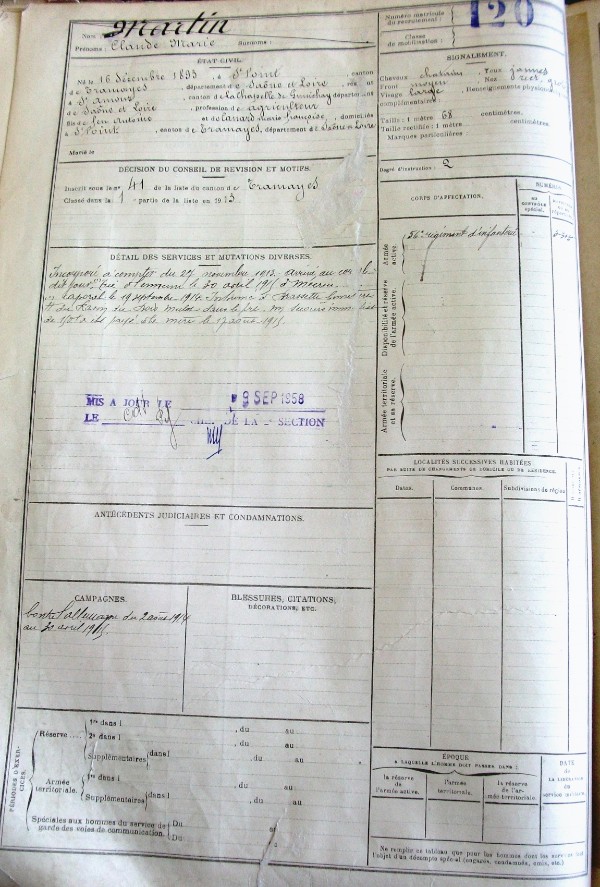 Nom : Martin
Prénoms : Claude Marie Surnoms :
Numéro matricule du recrutement : 120
Classe de mobilisation :
ÉTAT CIVIL.
Né le 16 Décembre 1893, à St Point, canton
de Tramayes, département de Saône et Loire,
à St Amour, canton de La Chapelle de Guinchay département
de Saône et Loire, profession de agriculteur
fils de feu Antoine et de Marie Françoise, domiciliés
à St Point, canton de Tramayes, département de Saône et Loire
Marié le
SIGNALEMENT.
Cheveux chatain Yeux jaunes
Front moyen Nez
Visage large Renseignements physionomiques
complémentaires :
Taille : 1 mètre 68 centimètres.
Taille rectifiée : 1 mètre centimètres.
Marques particulières :
Degré d'instruction : 2
DÉCISION DU CONSEIL DE REVISION ET MOTIFS.
Inscrit sous le no 41 de la liste du canton de Tramayes
Classé dans la 1 partie de la liste en 1913
CORPS D'AFFECTATION.
NUMÉROS
au contrôle spécial.
Armée active.
56e régiment d'infanterie
Disponibilité et réserve de l'armée active.
Armée territoriale et sa réserve.
DÉTAIL DES SERVICES ET MUTATIONS DIVERSES.
Incorporé à compter du 27 novembre 1913. arrivé au corps le
dit jour, Tué à l'ennemi le 30 avril 1915 à
Caporal le 19 septembre 1914.
secours
de 150f a été payé à la mère le 17 août 1915.
MIS A JOUR LE 9 SEP 1958
LE CHEF DE LA SECTION
LOCALITÉS SUCCESSIVES HABITÉES
PAR SUITE DE CHANGEMENTS DE DOMICILE OU DE RÉSIDENCE.
Dates. Communes. Subdivisions de région
ANTÉCÉDENTS JUDICIAIRES ET CONDAMNATIONS.
CAMPAGNES.
Contre l'allemagne du 2 août 1914
au 30 avril 1915.
BLESSURES, CITATIONS,
DÉCORATIONS, ETC.
PÉRIODES D'EXERCICES.
Réserve....
1re dans l , du au
2e dans l , du au
Supplémentaires dans l , du au
Armée territoriale.
1re dans l , du au
Supplémentaires dans l , du au
Spéciales aux hommes du service de garde des voies de communication.
Du au
Du au
ÉPOQUE
A LAQUELLE L'HOMME DOIT PASSER DANS :
la réserve de l'armée active.
l'armée territoriale.
la réserve de l'armée territoriale.
DATE de la LIBÉRATION du service militaire.
Ne remplir ce tableau que pour les hommes dont les services font
l'objet d'un décompte spécial (engagés, condamnés, omis, etc.)